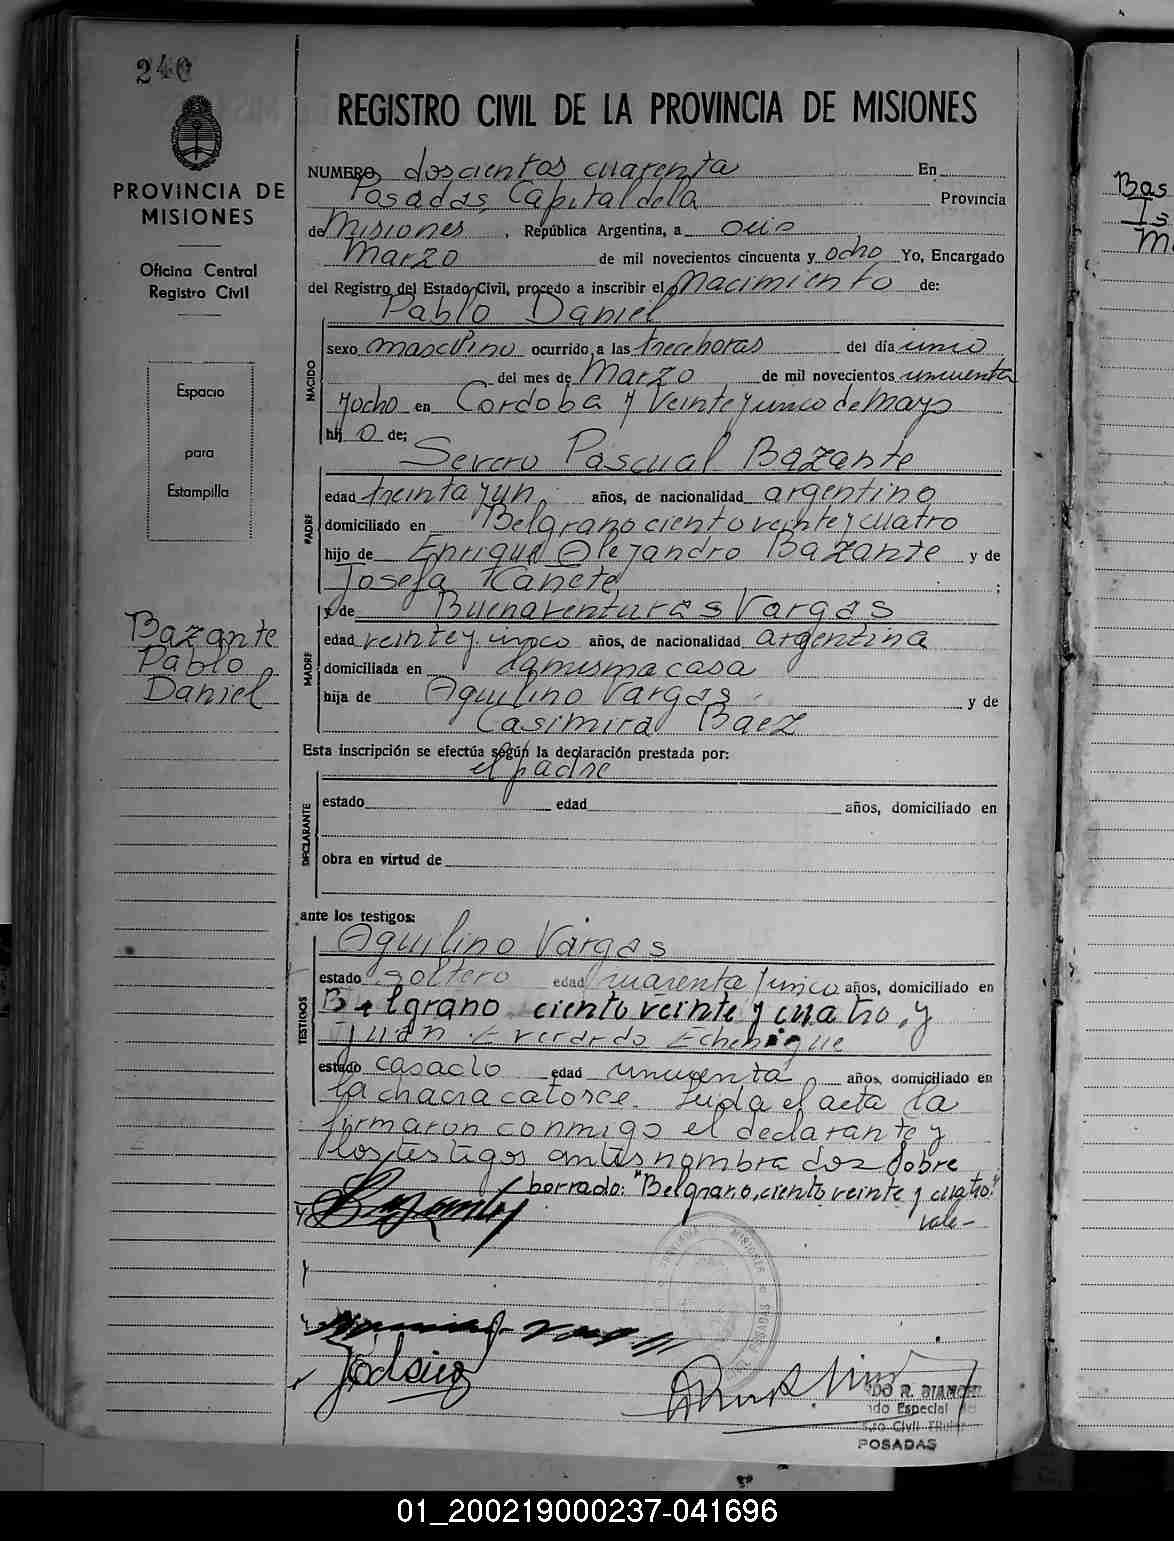 240
PROVINCIA DE
MISIONES
Oficina Central
Registro Civil
Espacio
para
Estampilla
Bazante
Pablo
Daniel
REGISTRO CIVIL DE LA PROVINCIA DE MISIONES
NUMERO doscientos cuarenta En
Posadas, Capital de la Provincia
de Misiones, República Argentina, a
Marzo de mil novecientos cincuenta y ocho Yo, Encargado
del Registro del Estado Civil, procedo a inscribir el Nacimiento de:
Pablo Daniel
NACIDO
sexo masculino ocurrido a las trece horas del día
del mes de Marzo de mil novecientos cincuenta
y ocho en Cordoba y Veinte y cinco de mayo
hijo de:
Severo Pascual Bazante
PADRE
edad treinta y un años, de nacionalidad argentino
domiciliado en Belgrano ciento veinte y cuatro
hijo de Enrique Alejandro Bazante y de
Josefa Kanete ;
y de Buenaventuras Vargas
MADRE
edad veinte y cinco años, de nacionalidad argentina
domiciliada en la misma casa
hija de Aquilino Vargas y de
Casimira Baez
Esta inscripción se efectúa según la declaración prestada por:
el padre
DECLARANTE
estado edad años, domiciliado en
obra en virtud de
ante los testigos:
Aquilino Vargas
TESTIGOS
estado soltero edad cuarenta y cinco años, domiciliado en
Belgrano ciento veinte y cuatro, y
Juan Everardo Echenique
estado casado edad cincuenta años, domiciliado en
la chacra catorce. Leida el acta la
firmaron conmigo el declarante y
los testigos antes nombrados Sobre
borrado: "Belgrano, ciento veinte y cuatro"
vale-
PROVINCIA MISIONES
POSADAS
DO R. BIANCHI
do Especial
Civil
POSADAS
Bas
Is
Ma
01_200219000237-041696